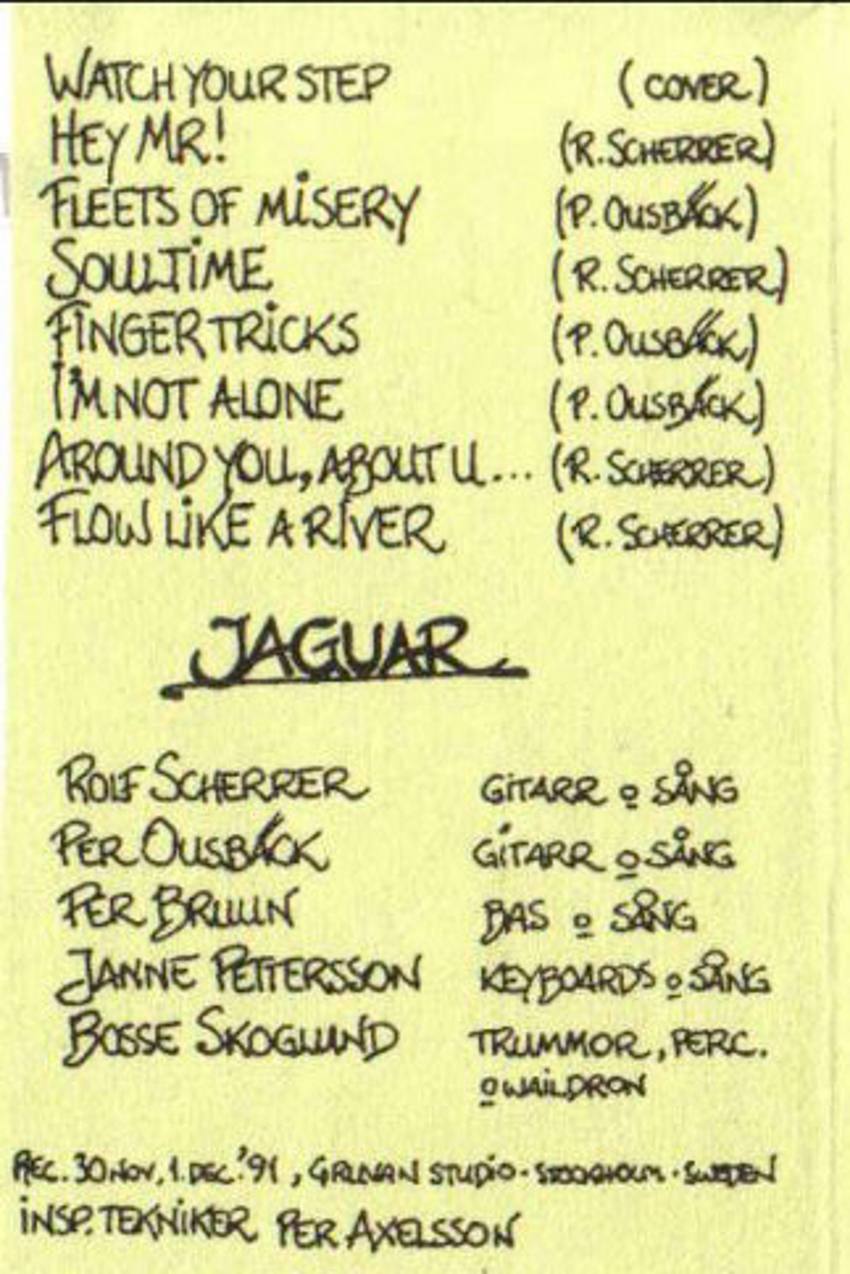 WATCH YOUR STEP (COVER)
HEY MR! (R. SCHERRER)
FLEETS OF MISERY (P. OUSBÄCK)
SOULTIME (R. SCHERRER)
FINGERTRICKS (P. OUSBÄCK)
I'M NOT ALONE (P. OUSBÄCK)
AROUND YOU, ABOUT U... (R. SCHERRER)
FLOW LIKE A RIVER (R. SCHERRER)
JAGUAR
ROLF SCHERRER GITARR o SÅNG
PER OUSBÄCK GITARR o SÅNG
PER BRUUN BAS o SÅNG
JANNE PETTERSSON KEYBOARDS o SÅNG
BOSSE SKOGLUND TRUMMOR, PERC.
o WAILDRON
REC. 30 NOV, 1. DEC. '91, GRUVAN STUDIO · STOCKHOLM · SWEDEN
INSP. TEKNIKER PER AXELSSON